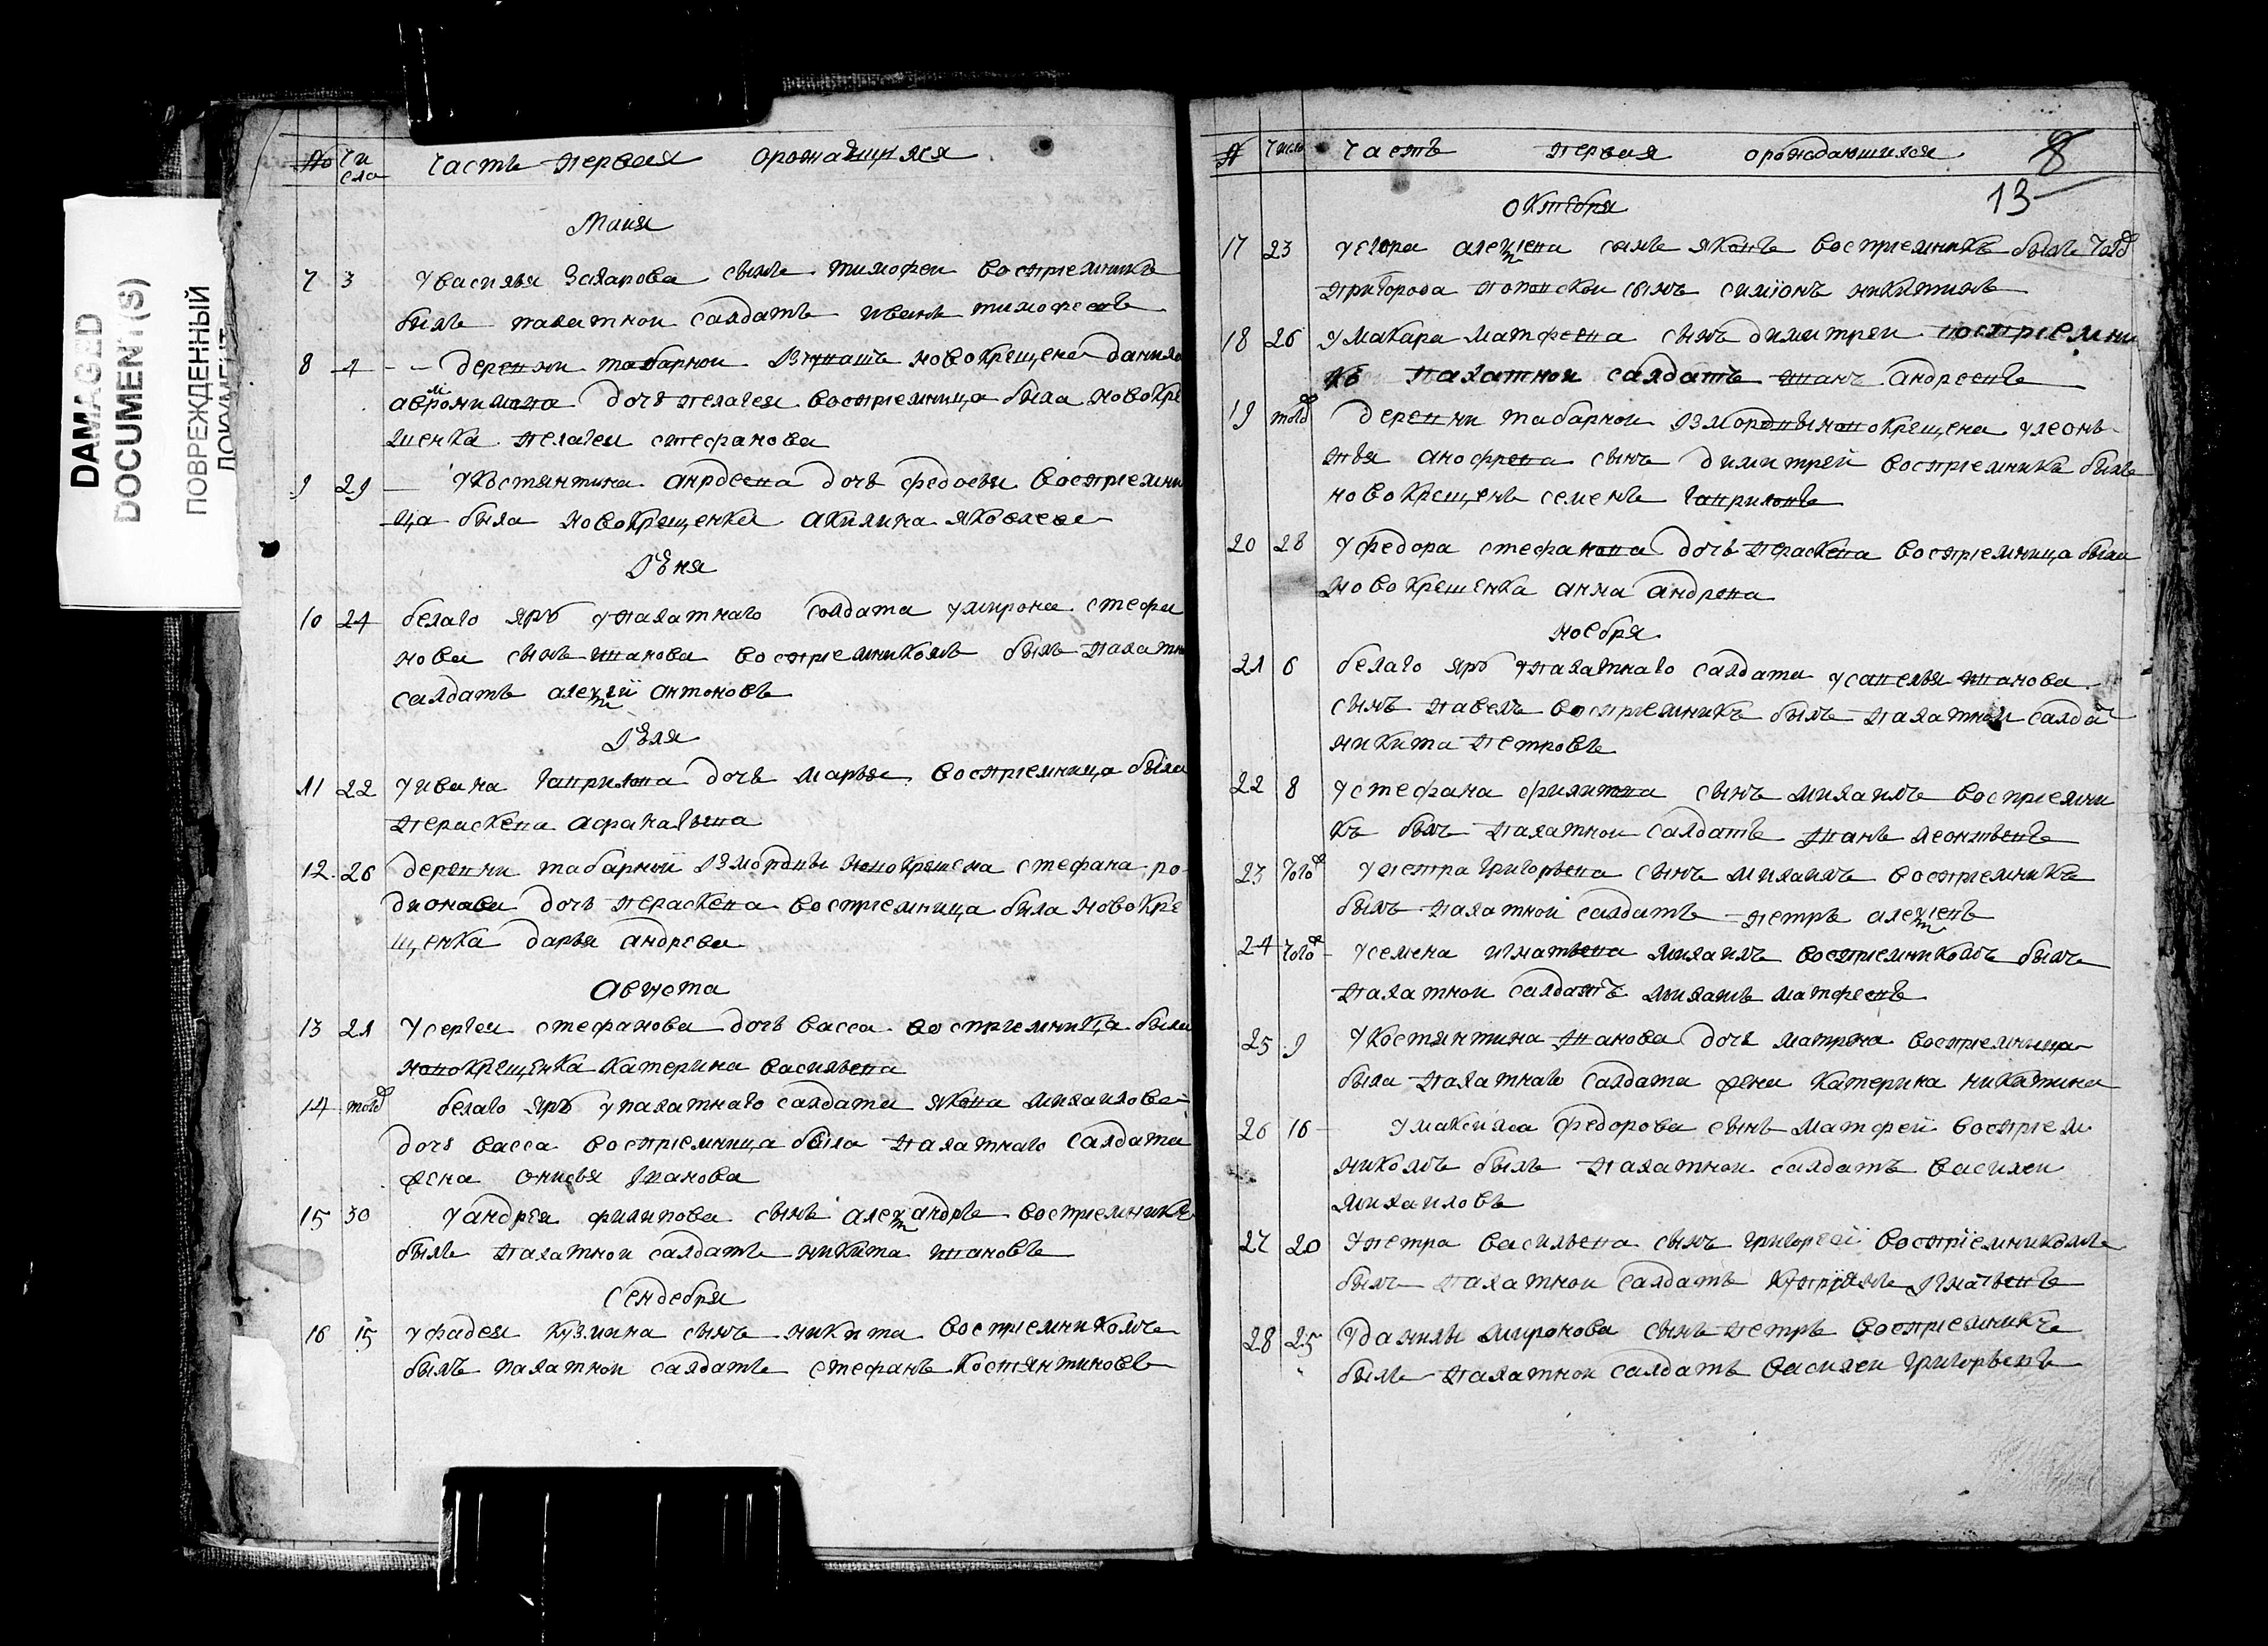 DAMAGED
DOCUMENT(S)
ПОВРЕЖДЕННЫЙ
ДОКУМЕНТ
№ Чи
сла
часть первая орожающихся
Маия
7 3 у василья Захарова сынъ тимофеи восприемникъ
былъ пахатнои салдатъ иванъ тимофеевъ
8 4 деревни табарнои новокрещена данила
дочь пелагея восприемница была новокре
щенка пелагея стефанова
9 29 у костянтина андреева дочь федосья восприемни
ца была новокрещенка акилина яковлева
Июня
10 24 белаго яру у пахатнаго солдата у мирона стефа
нова сынъ восприемникомъ былъ пахатно
салдатъ алеѯѣй антоновъ
Июля
11 22 у ивана гаврилова дочь марья восприемница была
параскева
12 26 деревни табарнои из мордвы новокрещена стефана ро
дионова дочь параскева восприемница была новокре
щенка дарья андрева
Августа
13 21 у сергея стефанова дочь васса восприемница была
новокрещенка катерина васильева
14 тогож белаго яру у пахатнаго салдата якова михаилова
дочь васса восприемница была пахатнаго салдата
жена онисья иванова
15 30 у андрея филипова сынъ алеѯандръ восприемникъ
былъ пахатнои салдатъ никита ивановъ
Сендебря
16 15 у фадея кузмина сынъ никита восприемникомъ
былъ пахатнои салдатъ стефанъ костянтиновъ
№ Число часть первая ораждающихся 8
13
октебря
17 23 у егора алеѯеева сынъ яковъ восприемникъ былъ тогож
пригорода сынъ симионъ никитинъ
18 26 у макара матфеева сынъ димитреи восприемни
къ пахатнои салдатъ иванъ андреевъ
19 тогож деревни табарнои из мордвы новокрещена у леонь
тья анофрева сынъ димитрей восприемникъ былъ
новокрещенъ семенъ гавриловъ
20 28 у федора стефанова дочь параскева восприемница была
новокрешенка анна андрева
ноебря
21 6 белаго яру у пахатнаго салдата у савелья иванова
сынъ павелъ восприемникъ былъ пахатнои салда
никита петровъ
22 8 у стефана филипова сынъ михаилъ восприемни
къ былъ пахатнои салдатъ иванъ леонтьевъ
23 тогож у петра григорьева сынъ михаилъ восприемникъ
былъ пахатнои салдатъ петръ алеѯеевъ
24 тогож у семена игнатьева михаилъ восприемникомъ былъ
пахатнои салдатъ матфеевъ
25 9 у костянтина иванова дочь матрена восприемница
была пахатнаго салдата жена катерина никитина
26 16 у максима федорова сынъ матфей восприем
никомъ былъ пахатнои салдатъ василеи
михаиловъ
27 20 у петра васильева сынъ григорей восприемникомъ
былъ пахатнои салдатъ игнатьевъ
28 25 у данилы миронова сынъ петръ восприемникъ
былъ пахатнои салдатъ василеи григорьевъ